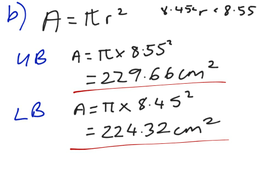 b) A = πr² 8.45 < r < 8.55
UB A = π × 8.55²
= 229.66 cm²
LB A = π × 8.45²
= 224.32 cm²